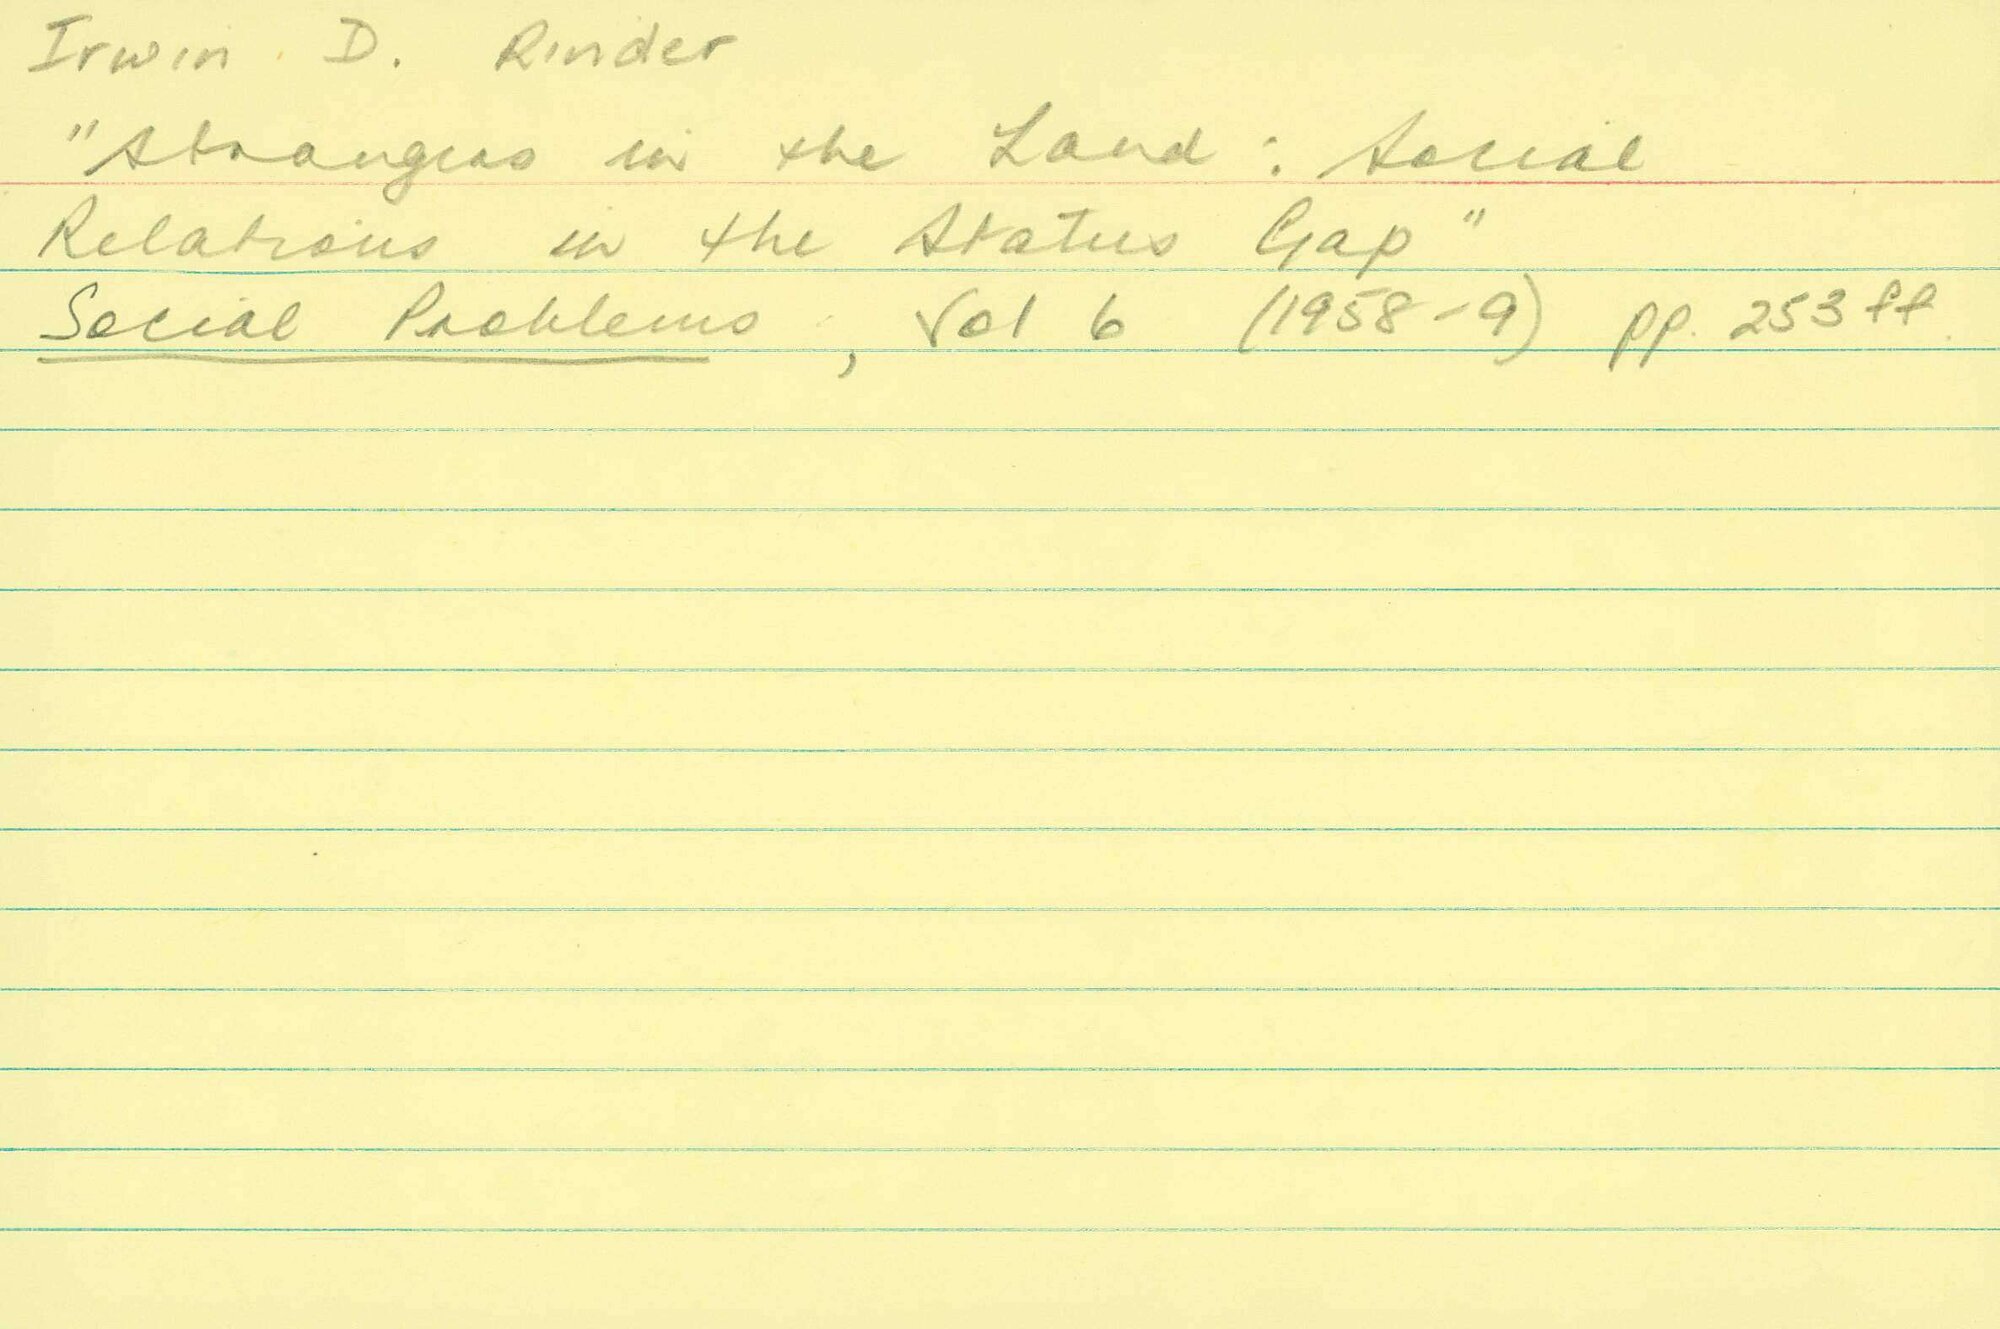 Irwin D. Rinder
"Strangers in the Land: Social
Relations in the Status Gap"
Social Problems, Vol 6 (1958-9) pp. 253 ff.